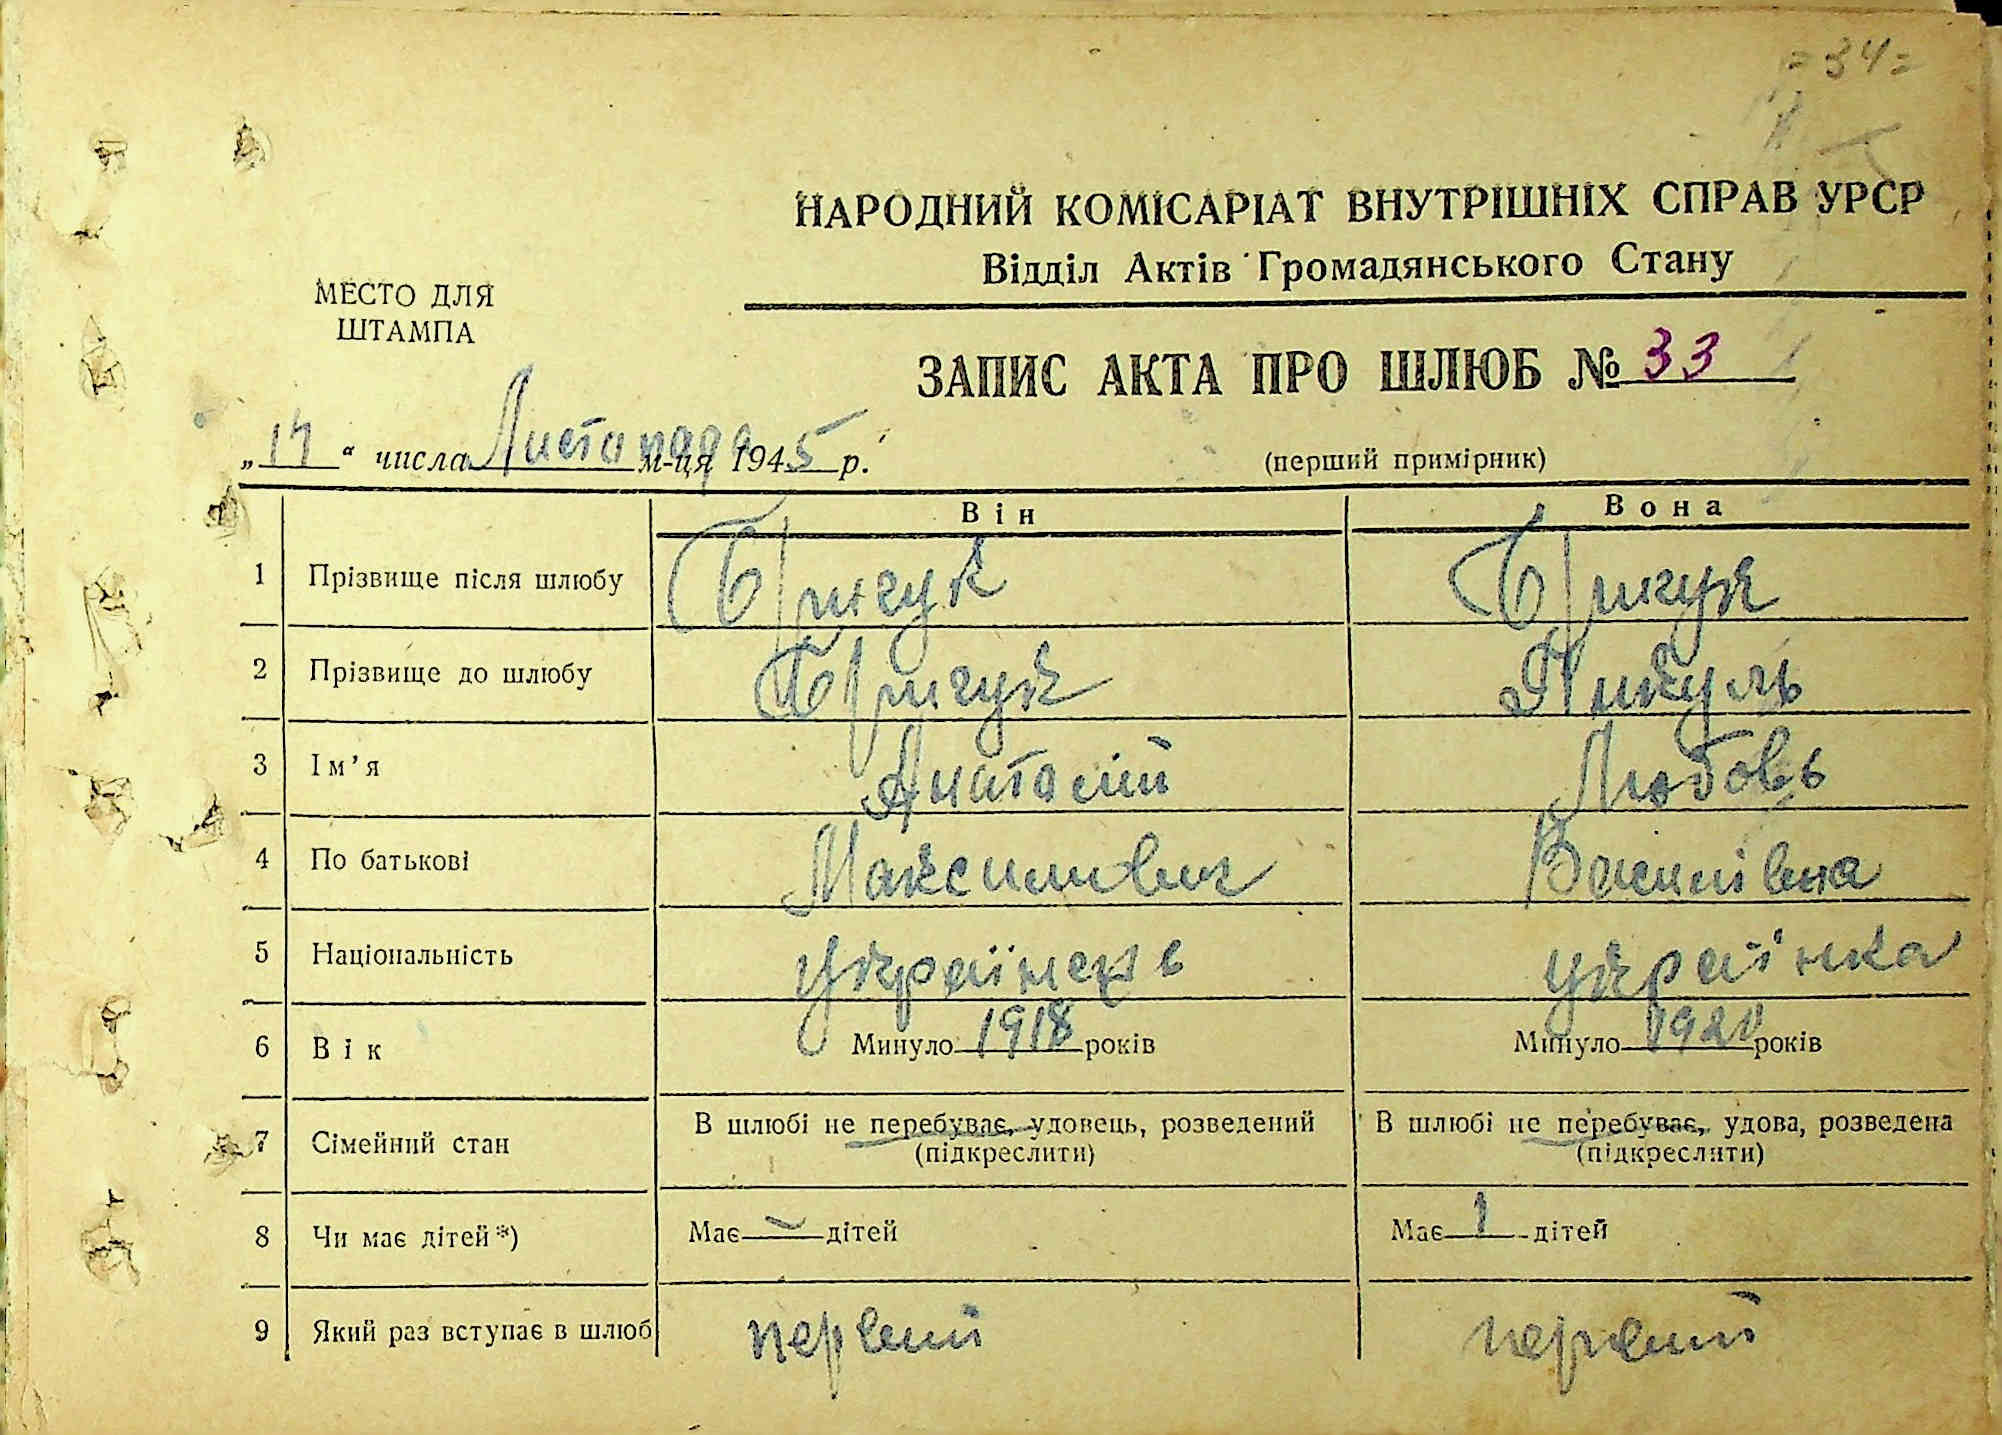 = 34 =
НАРОДНИЙ КОМІСАРІАТ ВНУТРІШНІХ СПРАВ УРСР
Відділ Актів Громадянського Стану
МЕСТО ДЛЯ
ШТАМПА
ЗАПИС АКТА ПРО ШЛЮБ № 33
„17“ числа Листопада м-ця 1945 р.
(перший примірник)
Він Вона
1 Прізвище після шлюбу Бричук Бричук
2 Прізвище до шлюбу Бричук Пикуль
3 Ім’я Анатолій Любовь
4 По батькові Максимович Василівна
5 Національність українець українка
6 Вік Минуло 1918 років Минуло 1920 років
7 Сімейний стан В шлюбі не перебуває, удовець, розведений В шлюбі не перебуває, удова, розведена
(підкреслити) (підкреслити)
8 Чи має дітей*) Має — дітей Має 1 дітей
9 Який раз вступає в шлюб первий первий